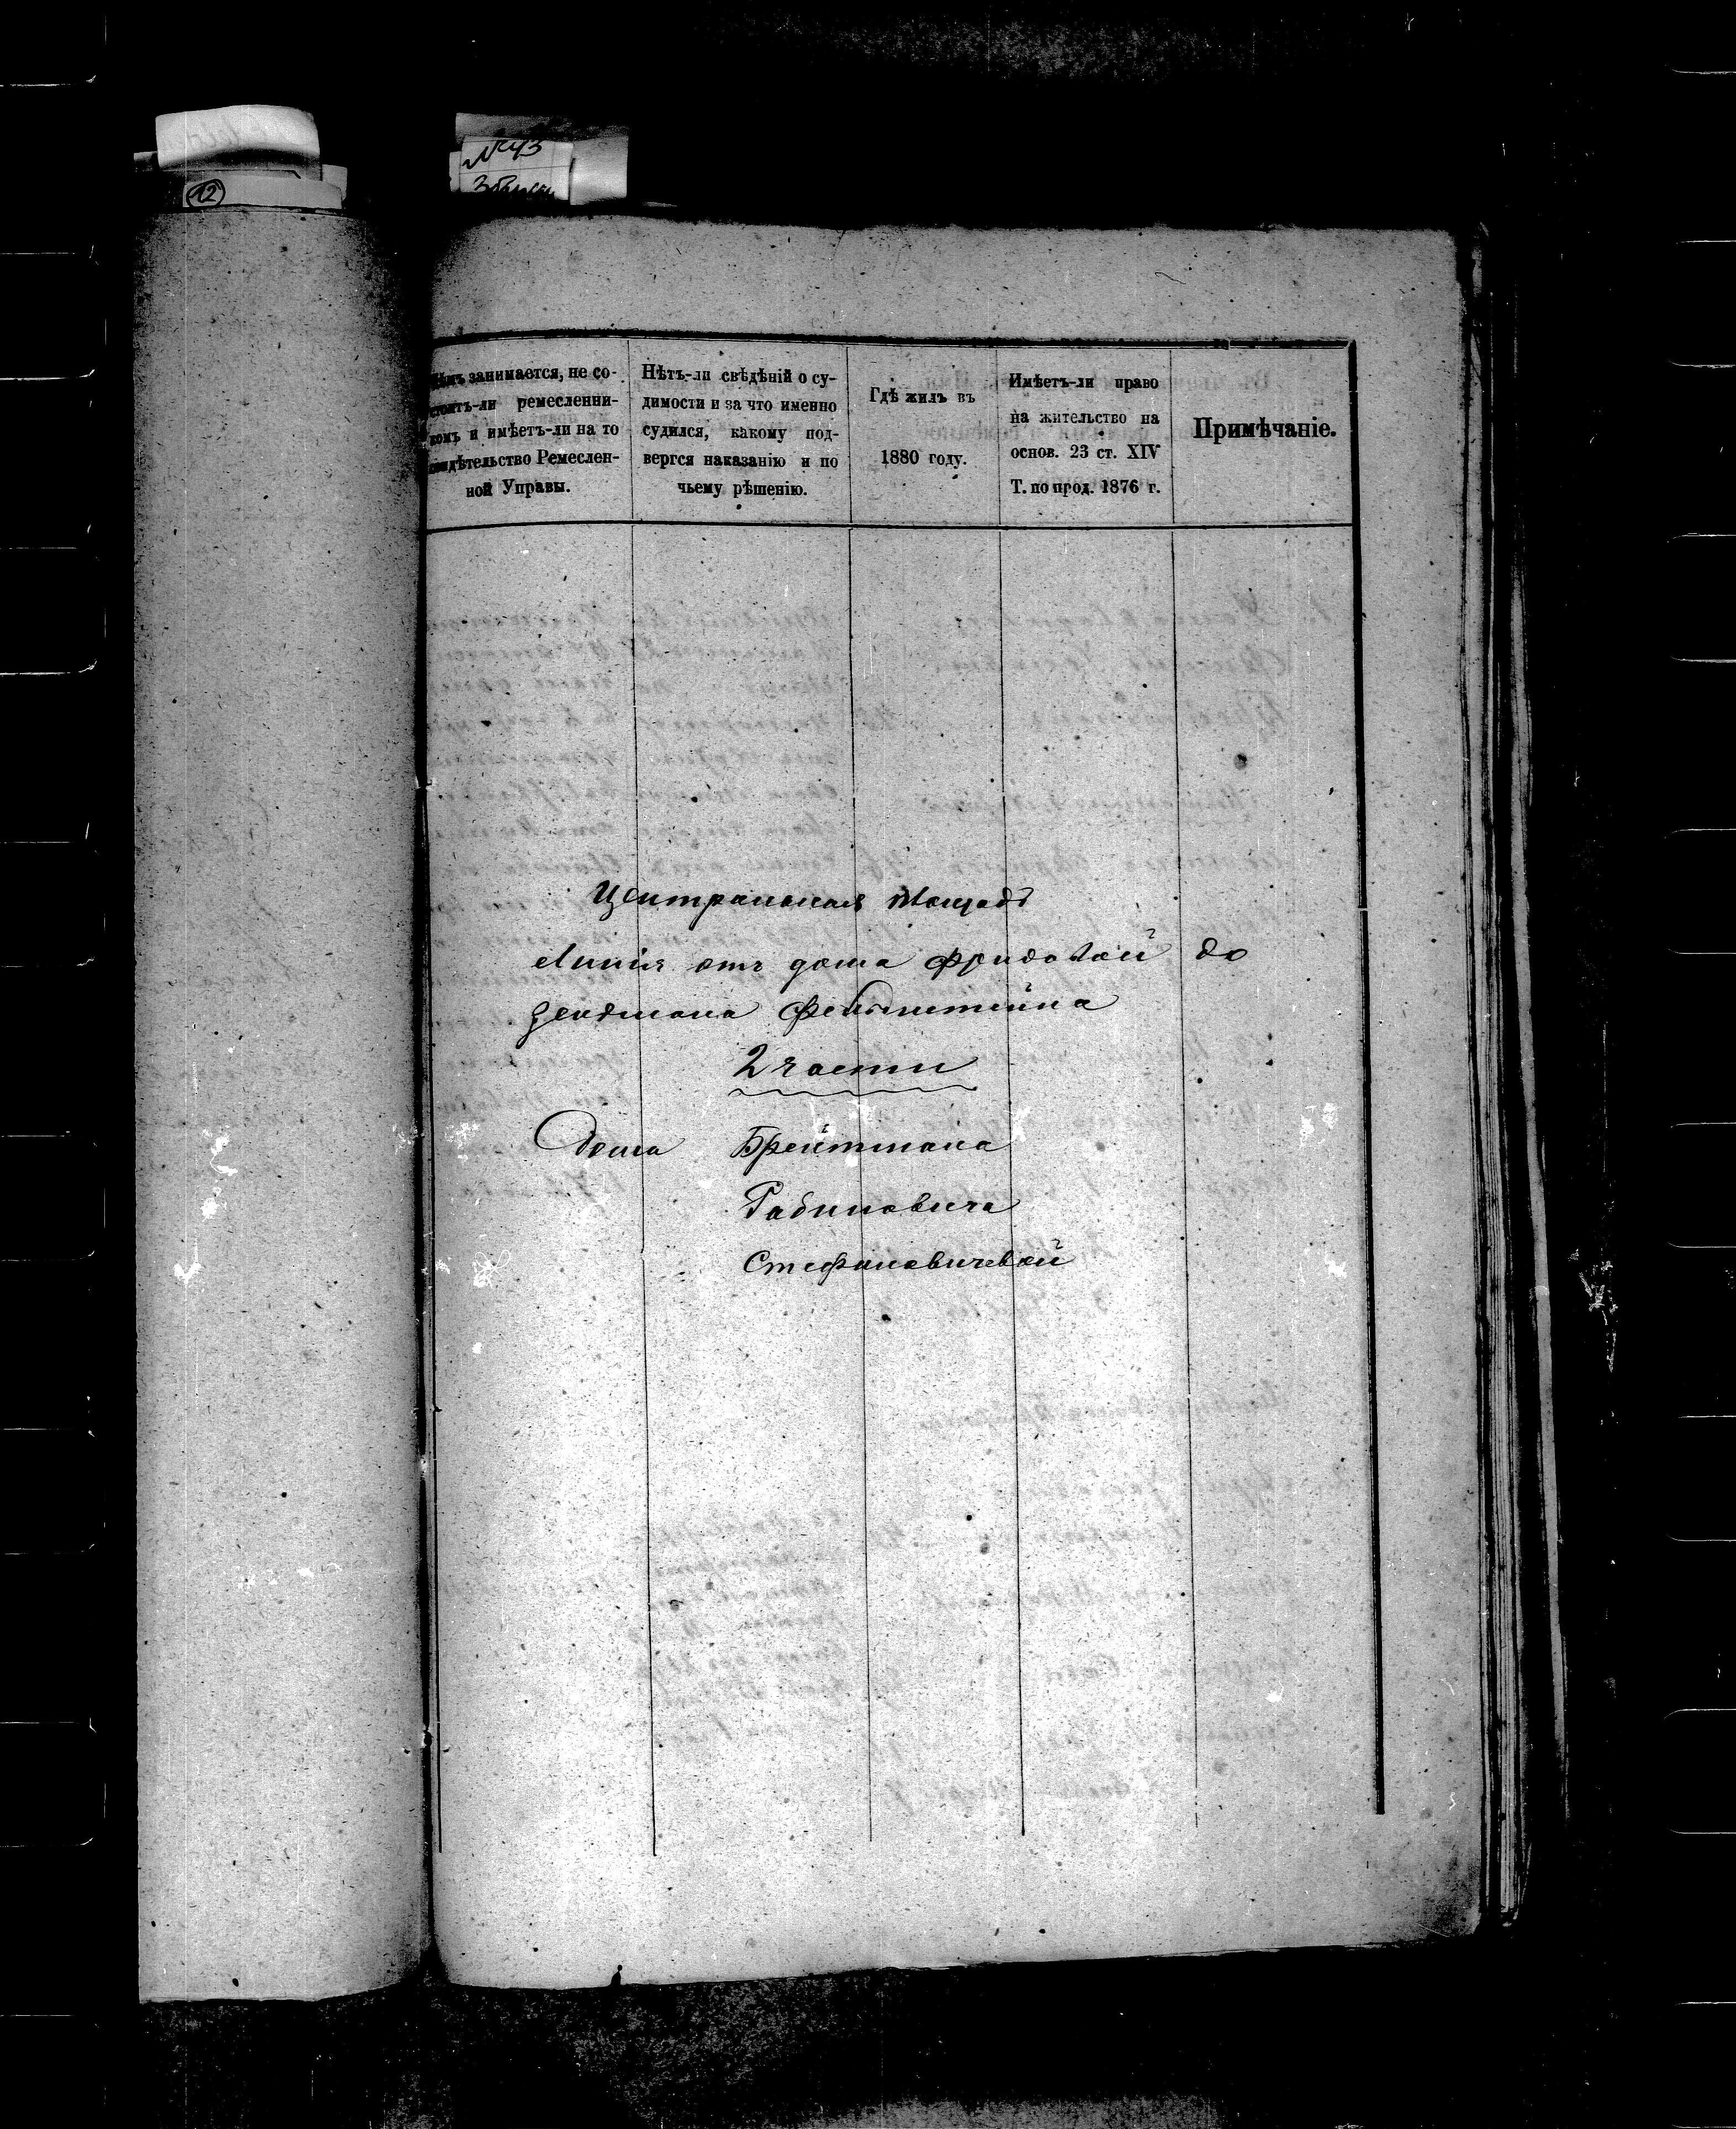 №43
12
Чѣмъ занимается, не со-
стоитъ-ли ремесленни-
комъ и имѣетъ-ли на то
свидѣтельство Ремеслен-
ной Управы.
Нѣтъ-ли свѣдѣній о су-
димости и за что именно
судился, какому под-
вергся наказанію и по
чьему рѣшенію.
Гдѣ жилъ въ
1880 году.
Имѣетъ-ли право
на жительство на
основ. 23 ст. XIV
Т. по прод. 1876 г.
Примѣчаніе.
Центральная площадь
Линія отъ дома Фридовой до
Зендмана Фельдштейна
2 части
Дома Брейтмана
Рабиновича
Стефановичевой